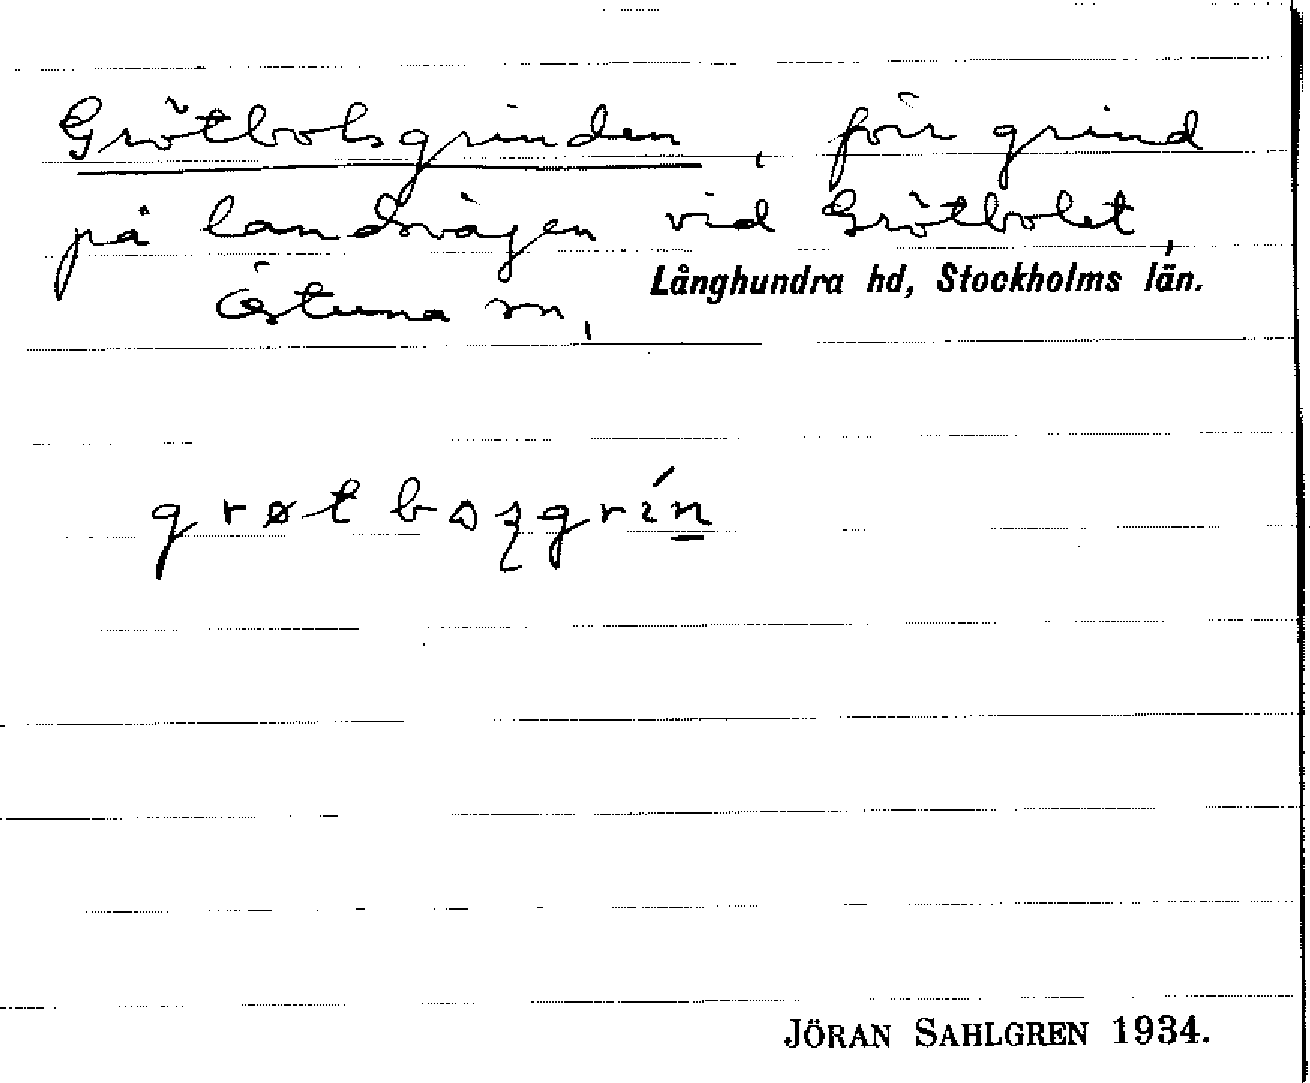 Grötbolsgrinden, förr grind
på landsvägen vid Grötbolet,
Östuna sn, Långhundra hd, Stockholms län.
grøtboʂgrín̲
JÖRAN SAHLGREN 1934.